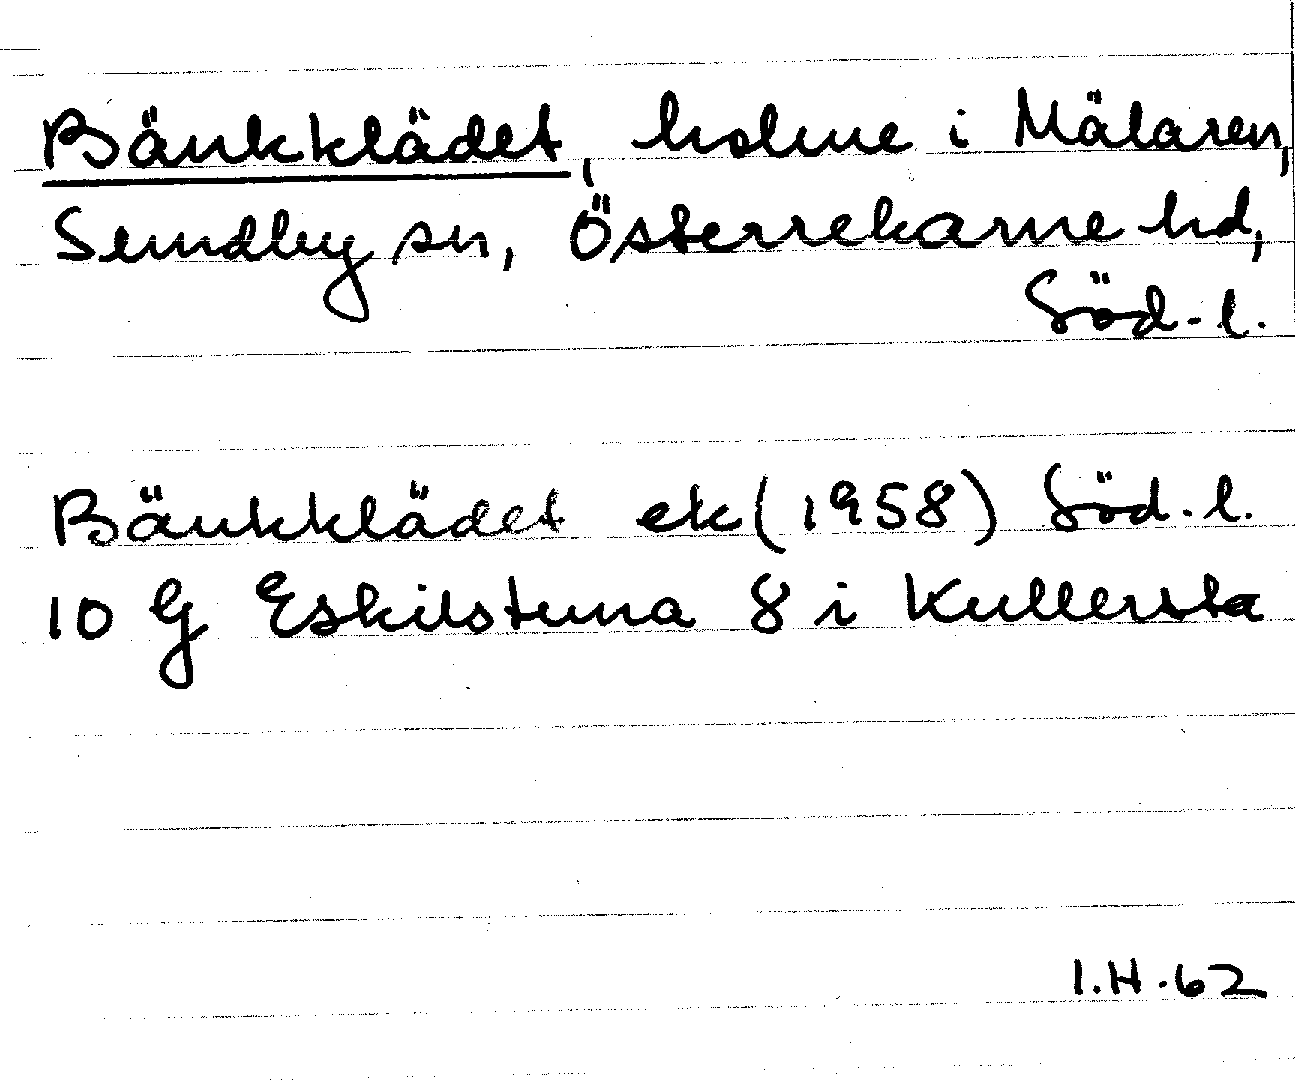 Bänkklädet, holme i Mälaren,
Sundby sn, Österrekarne hd,
Söd. l.
Bänkklädet ek (1958) Söd. l.
10 G Eskilstuna 8 i Kullersta
I.H. 62